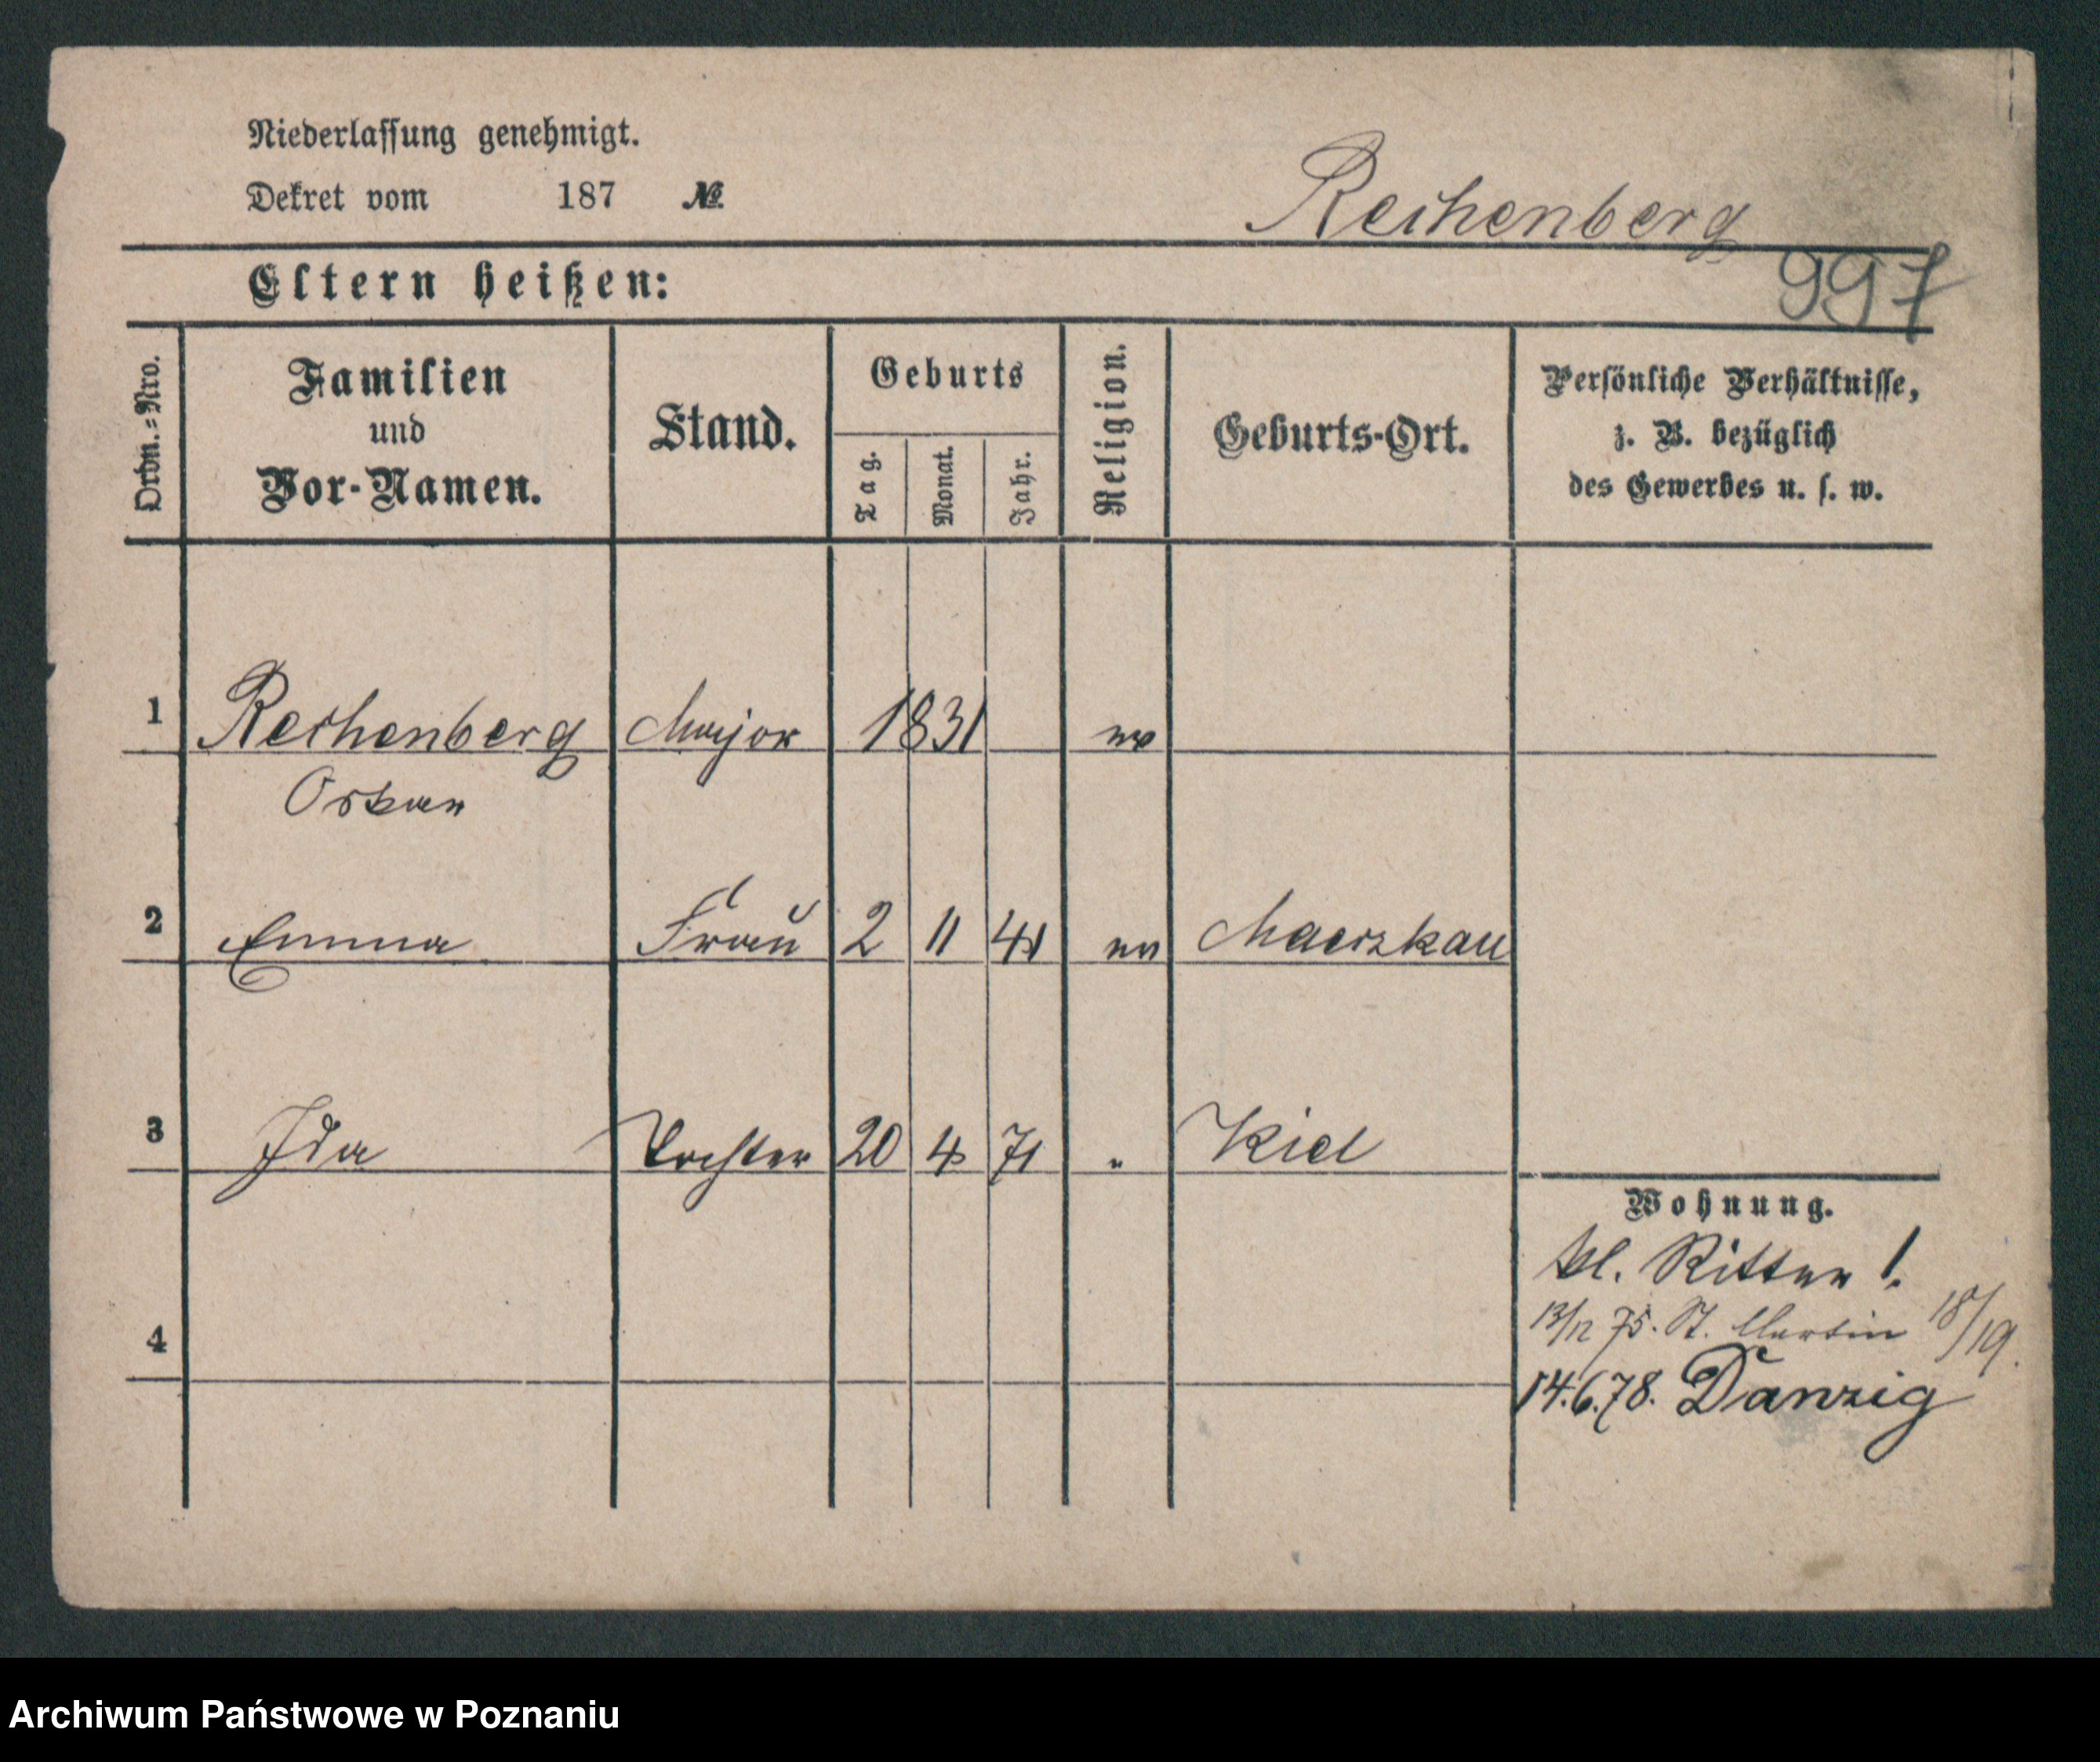 Niederlassung genehmigt.
Dekret vom 187 №
Rechenberg
997
Eltern heißen:
Ordn.-Nro.
Familien und Vor-Namen.
Stand.
Geburts
Tag.
Monat.
Jahr.
Religion.
Geburts-Ort.
Persönliche Verhältnisse,
z. B. bezüglich
des Gewerbes u. s. w.
1 Rechenberg Major 1831 ev
Oskar
2 Emma Frau 2 11 41 ev Maerzkau
3 Ida Tochter 20 4 71 " Kiel
Wohnung.
kl. Ritter 1.
13/12 75. St. Martin 18/19.
4
14.6.78. Danzig
Archiwum Państwowe w Poznaniu